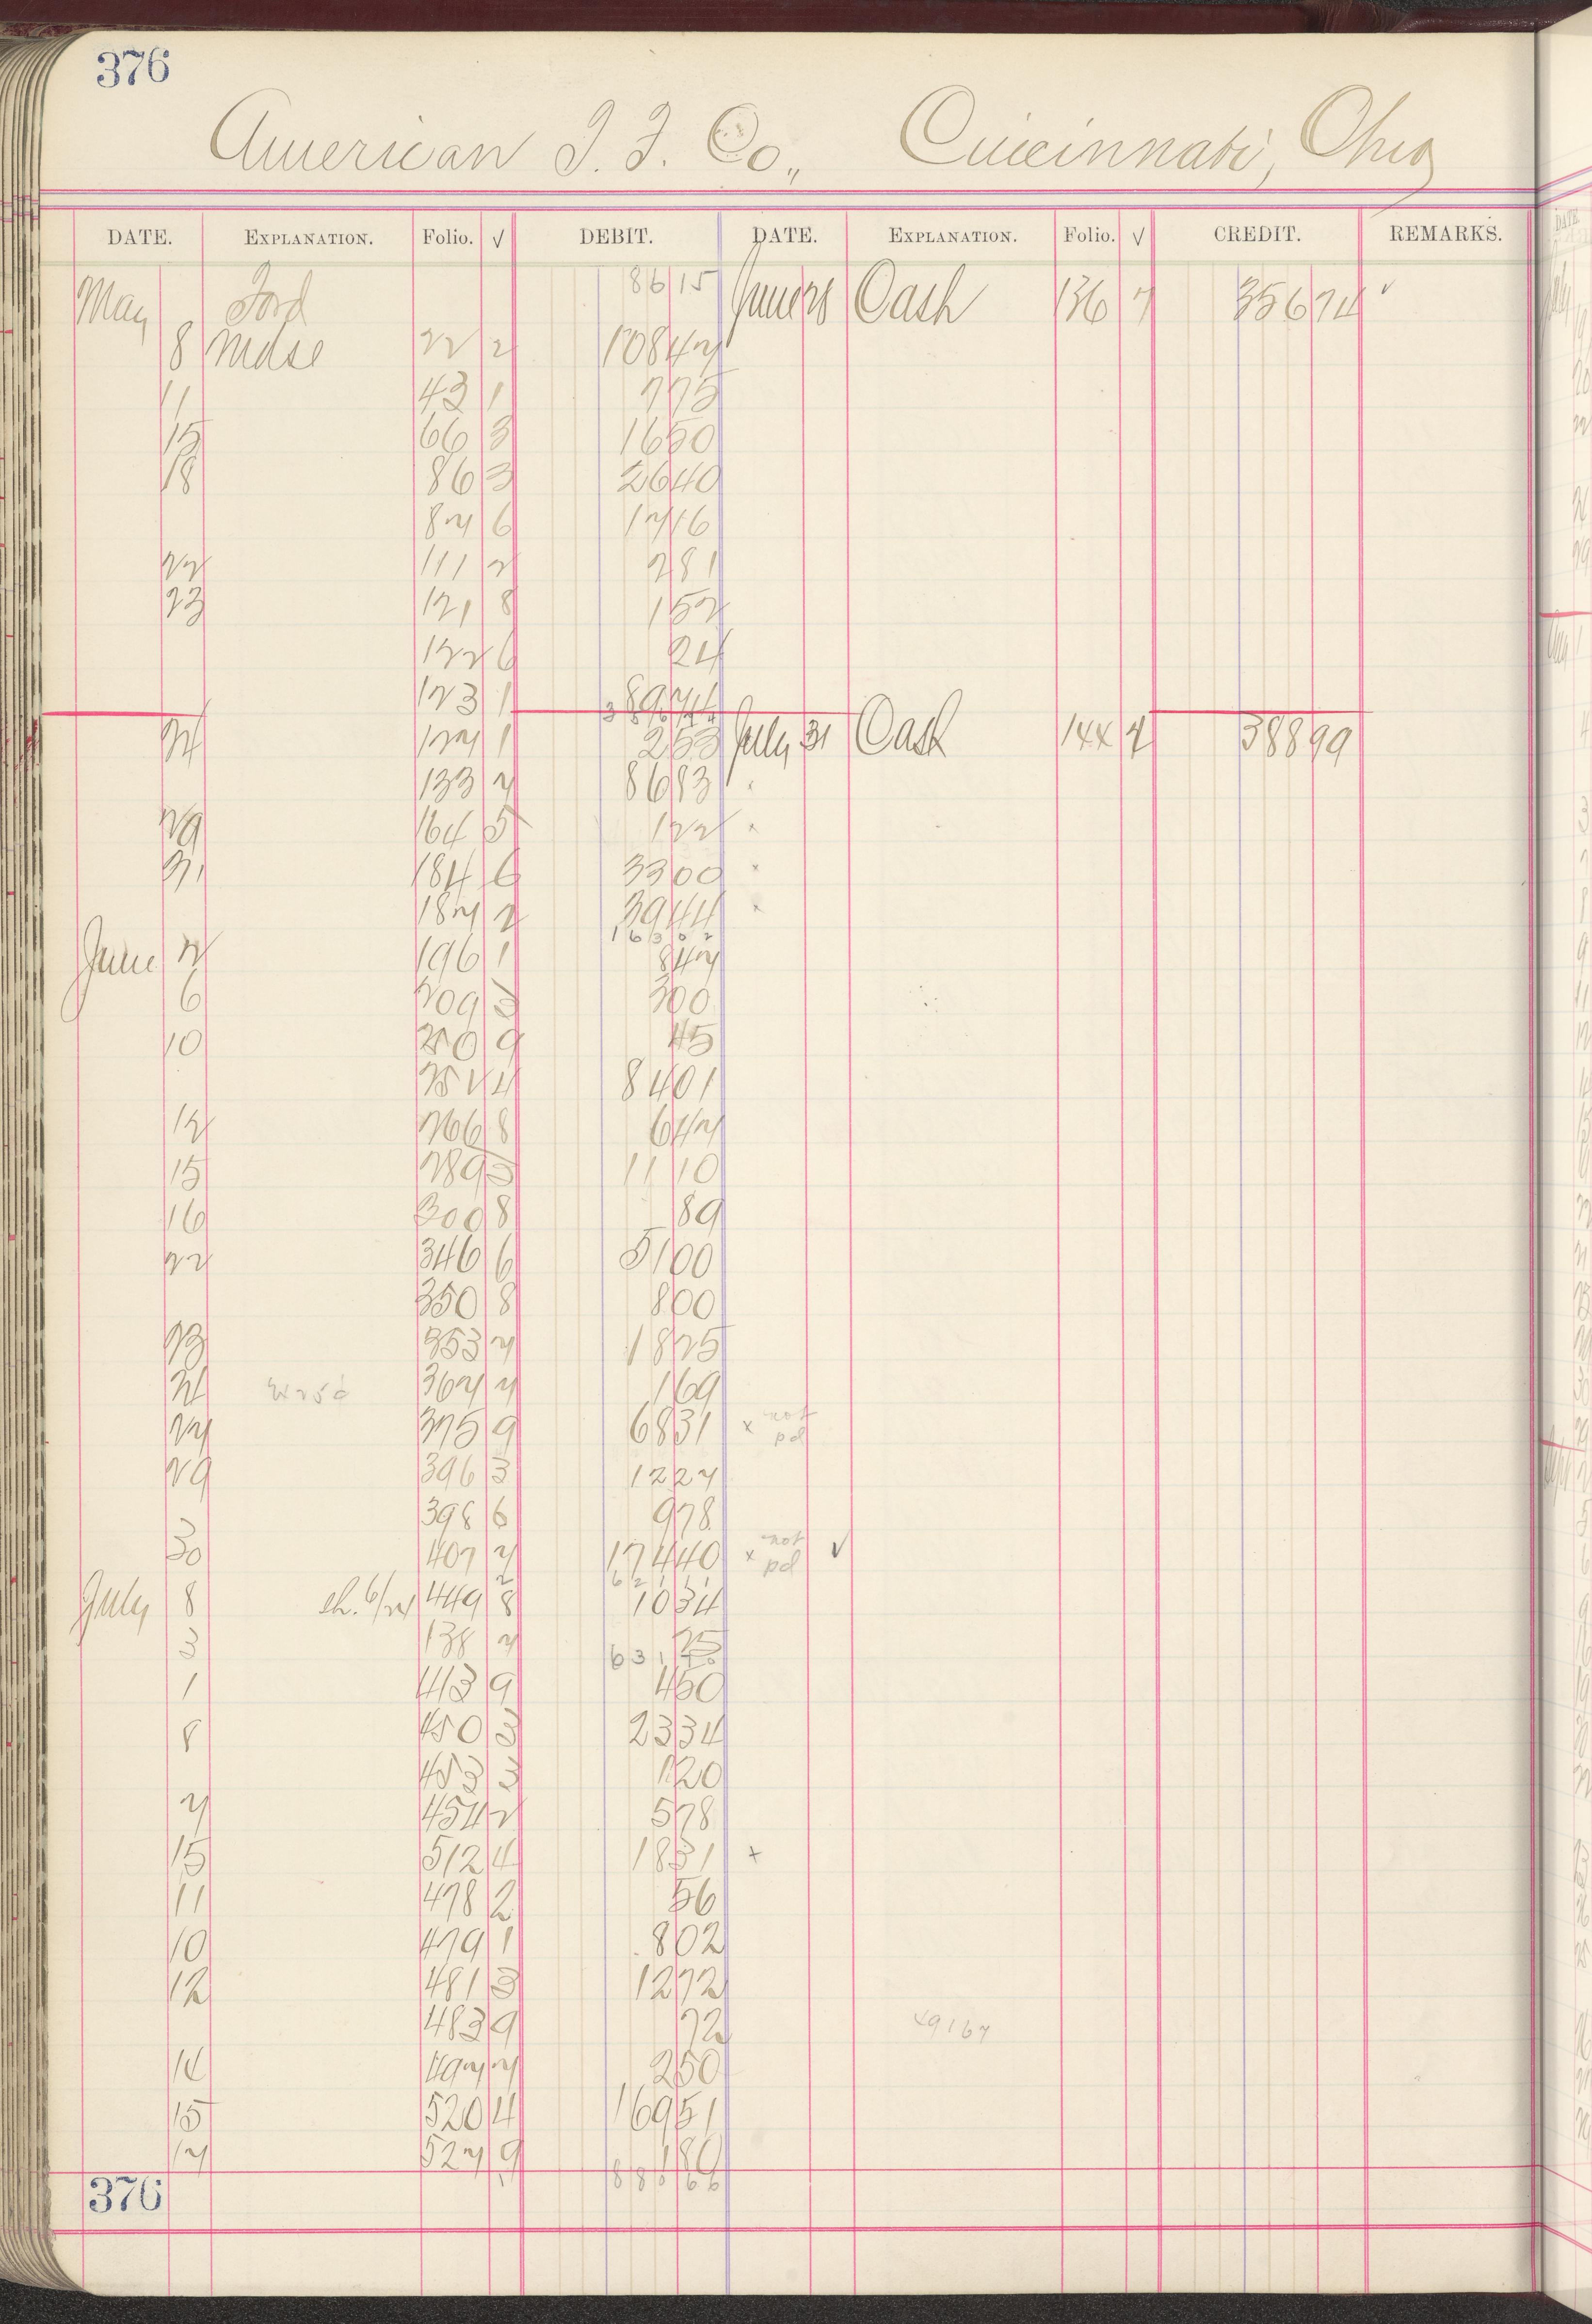 376
American T. F. Co., Cincinnati, Ohio
DATE. EXPLANATION. Folio. √ DEBIT. DATE. EXPLANATION. Folio. √ CREDIT. REMARKS.
May Ford 86 15 June 28 Cash 136 7 356 74 √
8 Mdse 22 2 108 47
11 43 1 7 75
15 66 3 16 50
18 86 3 26 40
87 6 17 16
22 111 2 2 81
23 121 8 1 52
122 6 24
123 1 89 74
24 127 1 2 53 July 31 Cash 144 7 388 99
133 7 86 83
29 164 5 1 22 x
31 184 6 33 00 x
187 2 39 44 x
1 6 3 0 2
June 2 196 1 8 47
6 209 3 3 00
10 240 9 45
251 4 84 01
12 266 8 6 47
15 289 3 11 10
16 300 8 89
22 346 6 51 00
350 8 8 00
23 353 7 18 25
24 367 7 1 69
27 375 9 68 31 x not pd
29 396 3 12 27
398 6 9 78
30 407 7 174 40 x not pd √
July 8 ch. 6/27 449 8 10 34
3 138 7 25
1 413 9 4 50
8 450 3 23 34
453 3 1 20
7 454 2 5 78
15 512 4 18 51 +
11 478 2 56
10 479 1 8 02
12 481 3 12 72
483 9 72
14 497 7 2 50
15 520 4 169 51
17 527 9 1 80
376